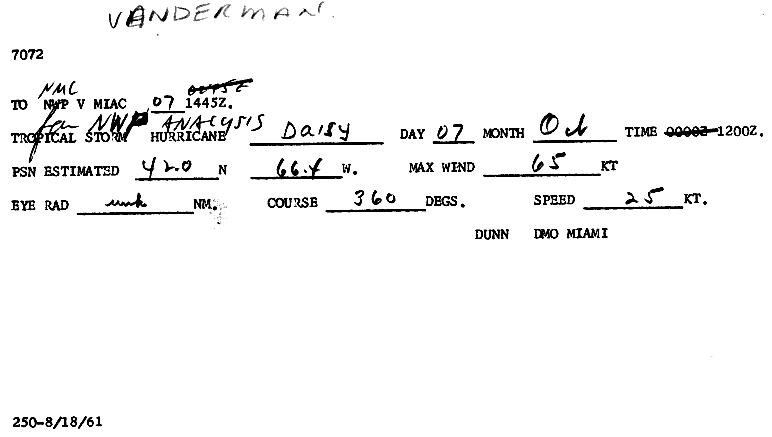 VANDERMAN
7072
NMC 0045Z
TO NWP V MIAC 07 1445Z.
for NWP ANALYSIS
TROPICAL STORM HURRICANE Daisy DAY 07 MONTH Oct TIME 0000Z 1200Z.
PSN ESTIMATED 42.0 N 66.4 W. MAX WIND 65 KT
EYE RAD unk NM. COURSE 360 DEGS. SPEED 25 KT.
DUNN DMO MIAMI
250-8/18/61